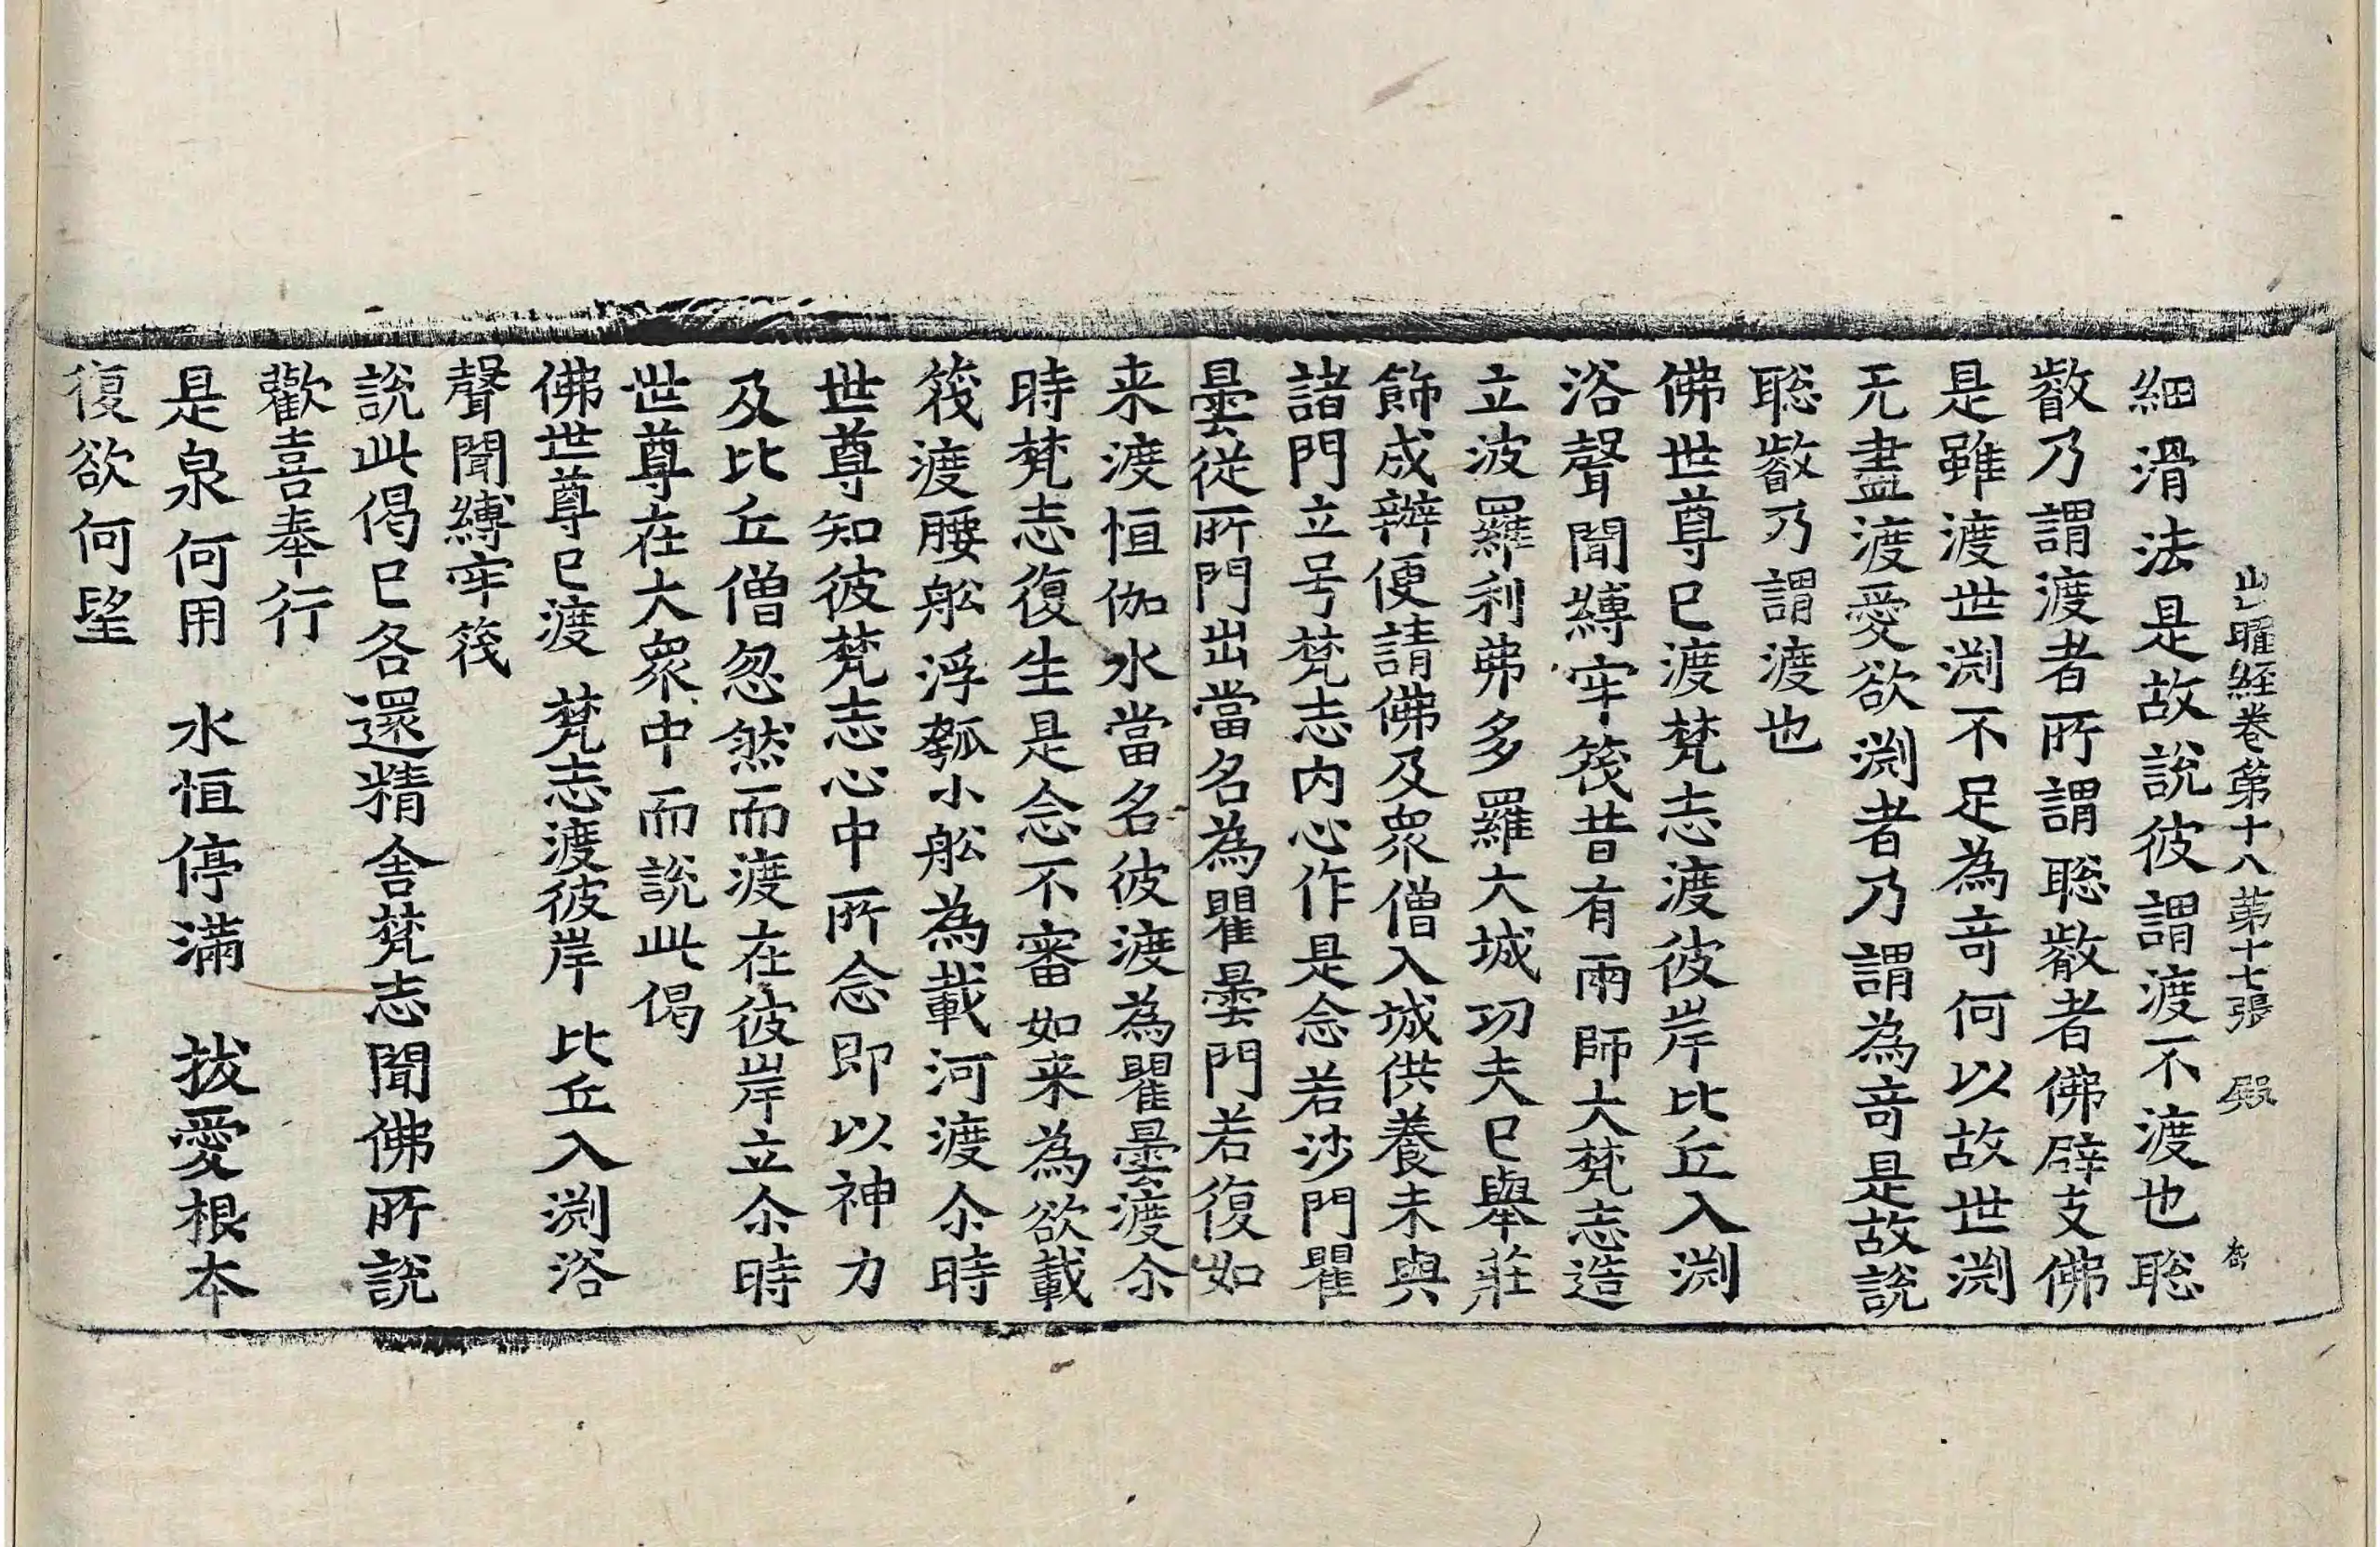 出曜經卷第十八 第十七張 殿
細滑法是故說彼謂渡不渡也聡
叡乃謂渡者所謂聡叡者佛辟支佛
是雖渡世渕不足為竒何以故世渕
无盡渡愛欲渕者乃謂為竒是故說
聡叡乃謂渡也
佛世尊已渡梵志渡彼岸比丘入渕
浴聲聞縛牢筏昔有雨師大梵志造
立波羅利弗多羅大城功夫已舉莊
飾成辦便請佛及衆僧入城供養未與
諸門立号梵志内心作是念若沙門瞿
曇從所門出當名為瞿曇門若復如
来渡恒伽水當名彼渡為瞿曇渡尒
時梵志復生是念不審如来為欲載
筏渡腰舩浮瓠小舩為載河渡尒時
世尊知彼梵志心中所念即以神力
及比丘僧忽然而渡在彼岸立尒時
世尊在大衆中而說此偈
佛世尊已渡 梵志渡彼岸 比丘入渕浴
聲聞縛牢筏
說此偈已各還精舍梵志聞佛所說
歡喜奉行
是泉何用 水恒停滿 拔愛根本
復欲何望